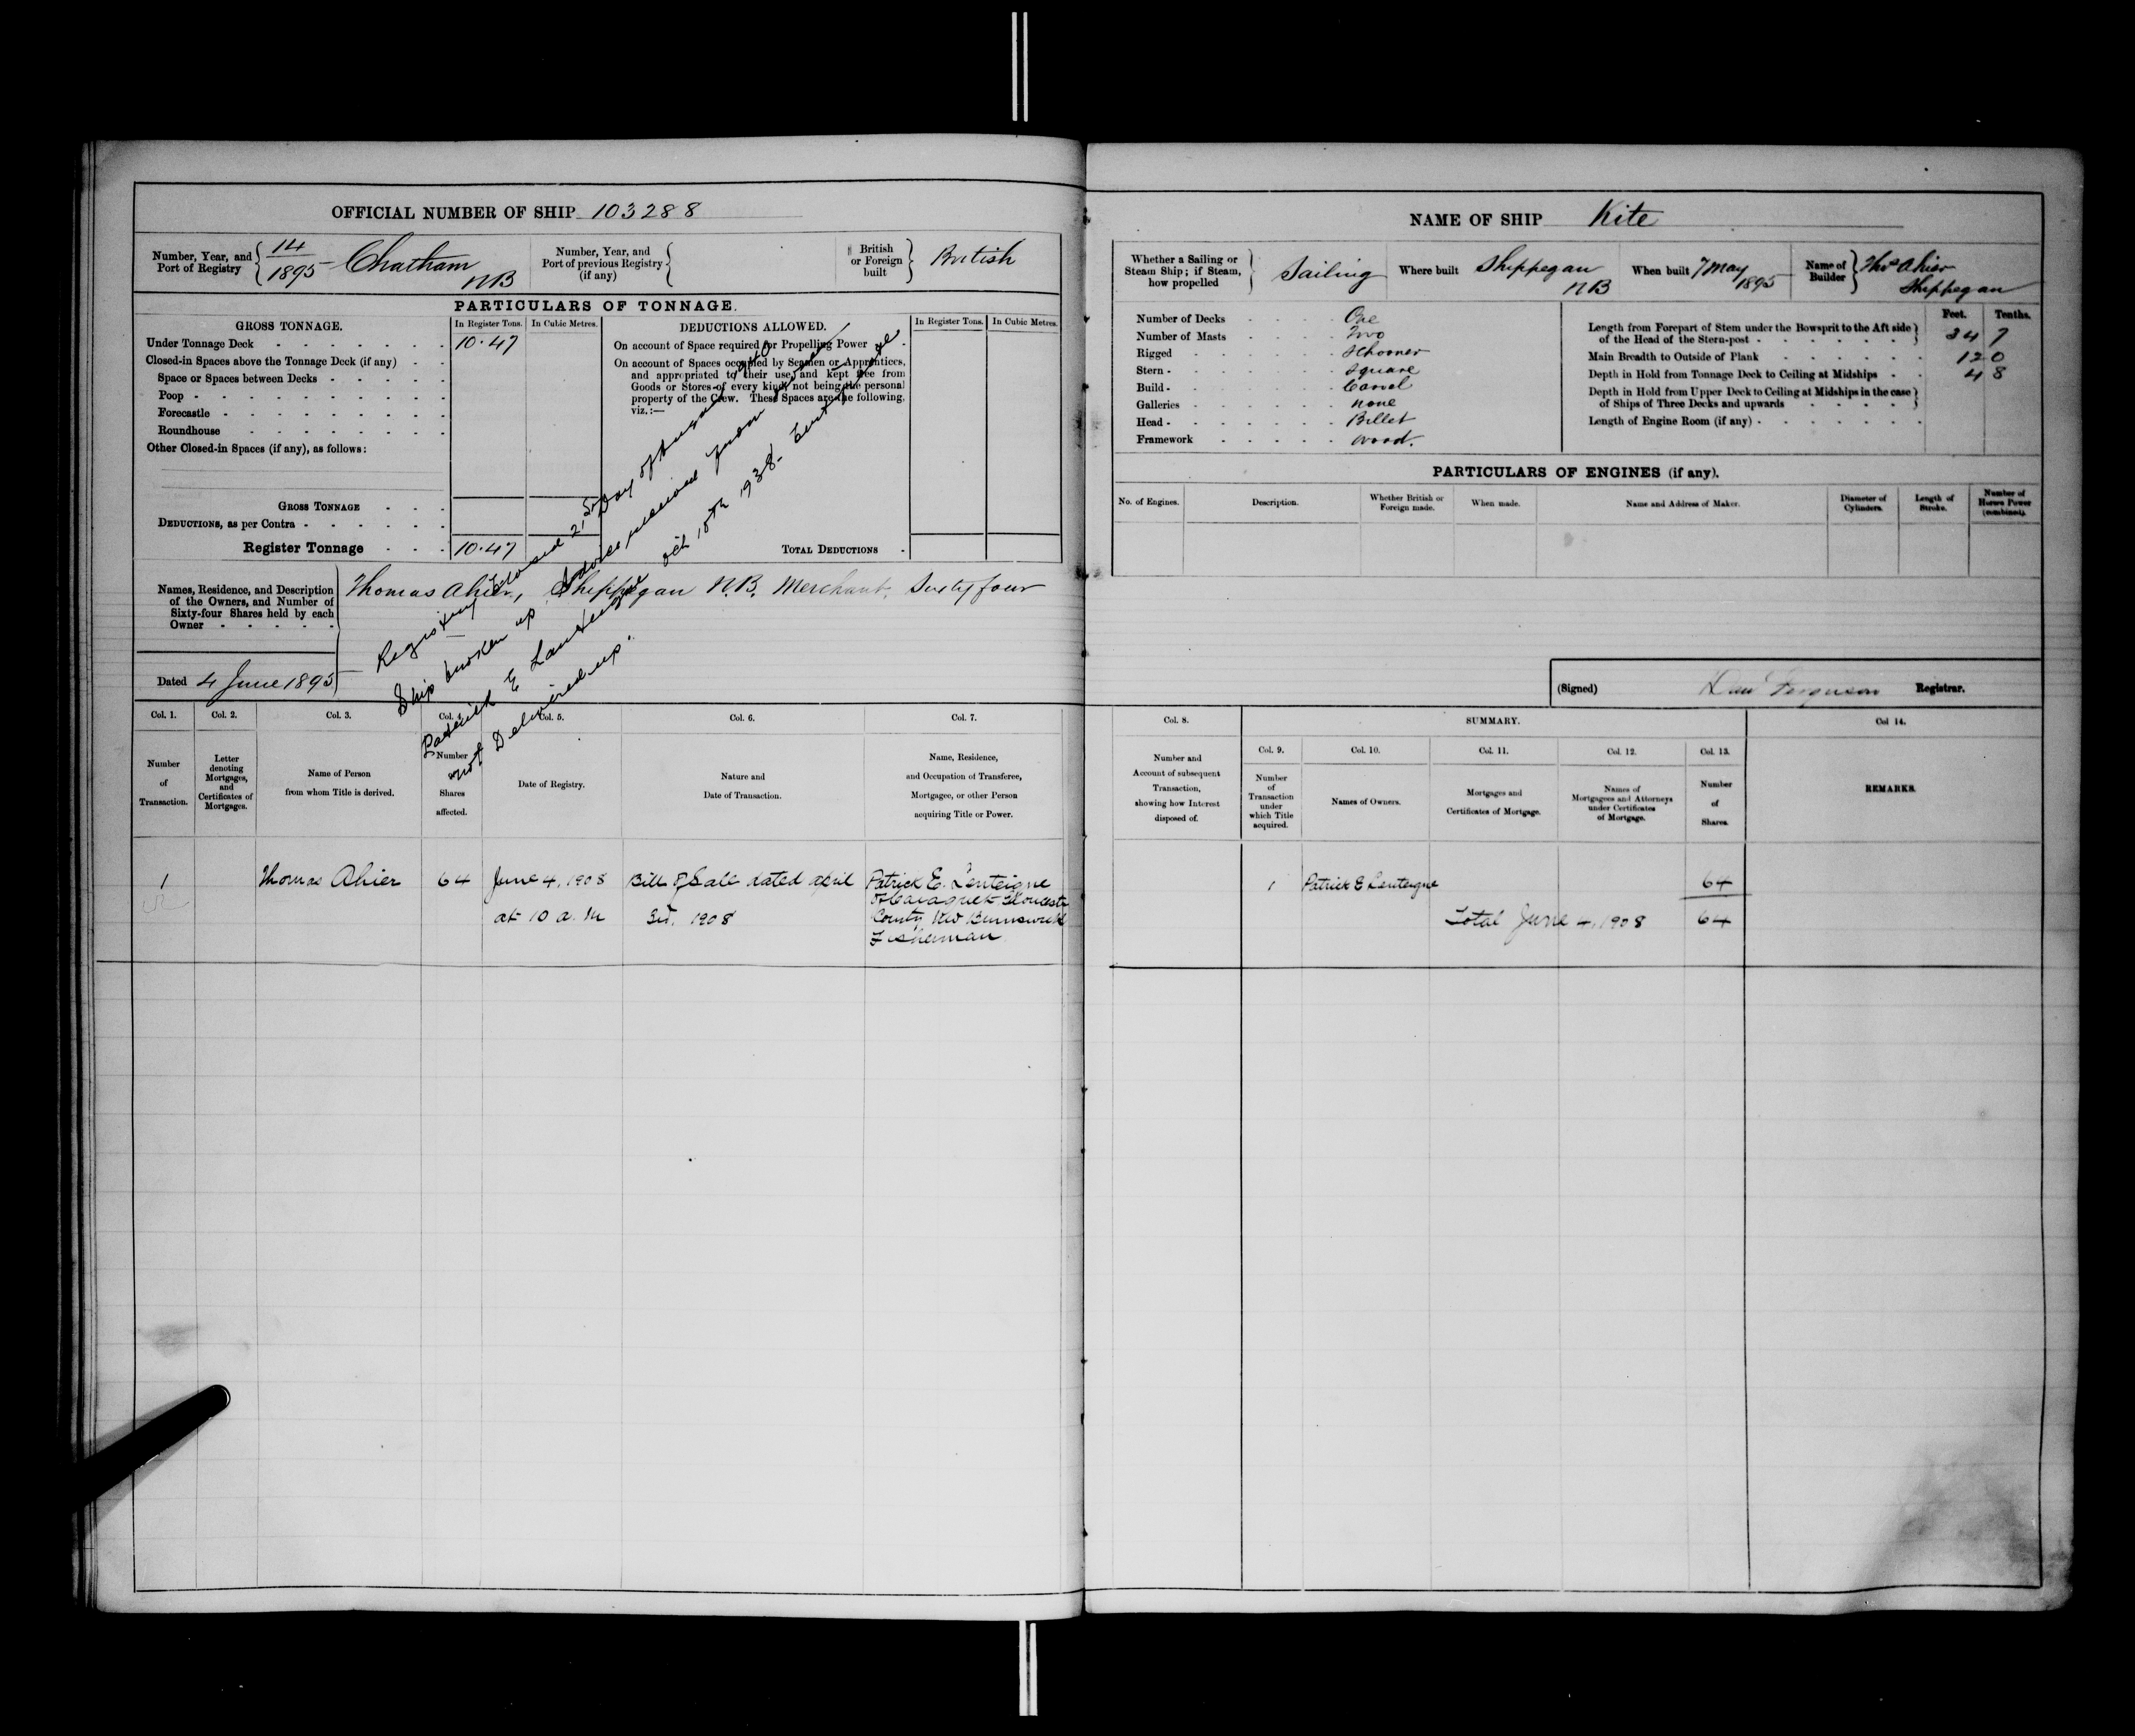 OFFICIAL NUMBER OF SHIP 103288
Number, Year, and Port of Registry 14/1895 Chatham NB
Number, Year, and Port of previous Registry (if any)
British or Foreign built British
PARTICULARS OF TONNAGE.
GROSS TONNAGE.
In Register Tons.
In Cubic Metres.
Under Tonnage Deck 10.47
Closed-in Spaces above the Tonnage Deck (if any)
Space or Spaces between Decks
Poop
Forecastle
Roundhouse
Other Closed-in Spaces (if any), as follows:
GROSS TONNAGE
DEDUCTIONS, as per Contra
Register Tonnage 10.47
DEDUCTIONS ALLOWED.
In Register Tons.
In Cubic Metres.
On account of Space required for Propelling Power
On account of Spaces occupied by Seamen or Apprentices,
and appropriated to their use, and kept free from
Goods or Stores of every kind, not being the personal
property of the Crew. These Spaces are the following,
viz.:—
TOTAL DEDUCTIONS
Names, Residence, and Description
of the Owners, and Number of
Sixty-four Shares held by each
Owner
Thomas Ahier, Shippegan N.B. Merchant. Sixty four
Dated 4 June 1895
Registry Closed 2, Day of
Ship broken up. Advice received from
Patrick E Lanteigne Oct 18th 1938. Certificate
not Delivered up.
Col. 1.
Number of Transaction.
Col. 2.
Letter denoting Mortgages, and Certificates of Mortgages.
Col. 3.
Name of Person from whom Title is derived.
Col. 4.
Number Shares affected.
Col. 5.
Date of Registry.
Col. 6.
Nature and Date of Transaction.
Col. 7.
Name, Residence, and Occupation of Transferee, Mortgagee, or other Person acquiring Title or Power.
1
Thomas Ahier
64
June 4, 1908
at 10 a.m
Bill of Sale dated april
3rd, 1908
Patrick E. Lenteigne
of Caraquet Gloucester
County New Brunswick
Fisherman
NAME OF SHIP Kite
Whether a Sailing or Steam Ship; if Steam, how propelled Sailing
Where built Shippegan NB
When built 7 May 1895
Name of Builder Thos Ahier Shippegan
Number of Decks One
Number of Masts Two
Rigged Schooner
Stern Square
Build Carvel
Galleries none
Head Billet
Framework wood.
Feet. Tenths.
Length from Forepart of Stem under the Bowsprit to the Aft side
of the Head of the Stern-post 34 7
Main Breadth to Outside of Plank 12 0
Depth in Hold from Tonnage Deck to Ceiling at Midships 4 8
Depth in Hold from Upper Deck to Ceiling at Midships in the case
of Ships of Three Decks and upwards
Length of Engine Room (if any)
PARTICULARS OF ENGINES (if any).
No. of Engines.
Description.
Whether British or Foreign made.
When made.
Name and Address of Maker.
Diameter of Cylinders.
Length of Stroke.
Number of Horses Power (combined).
(Signed) Ferguson Registrar.
Col. 8.
Number and Account of subsequent Transaction, showing how Interest disposed of.
SUMMARY.
Col. 9.
Number of Transaction under which Title acquired.
Col. 10.
Names of Owners.
Col. 11.
Mortgages and Certificates of Mortgage.
Col. 12.
Names of Mortgagees and Attorneys under Certificates of Mortgage.
Col. 13.
Number of Shares.
Col 14.
REMARKS.
1 Patrick E Lenteigne 64
Total June 4, 1908 64